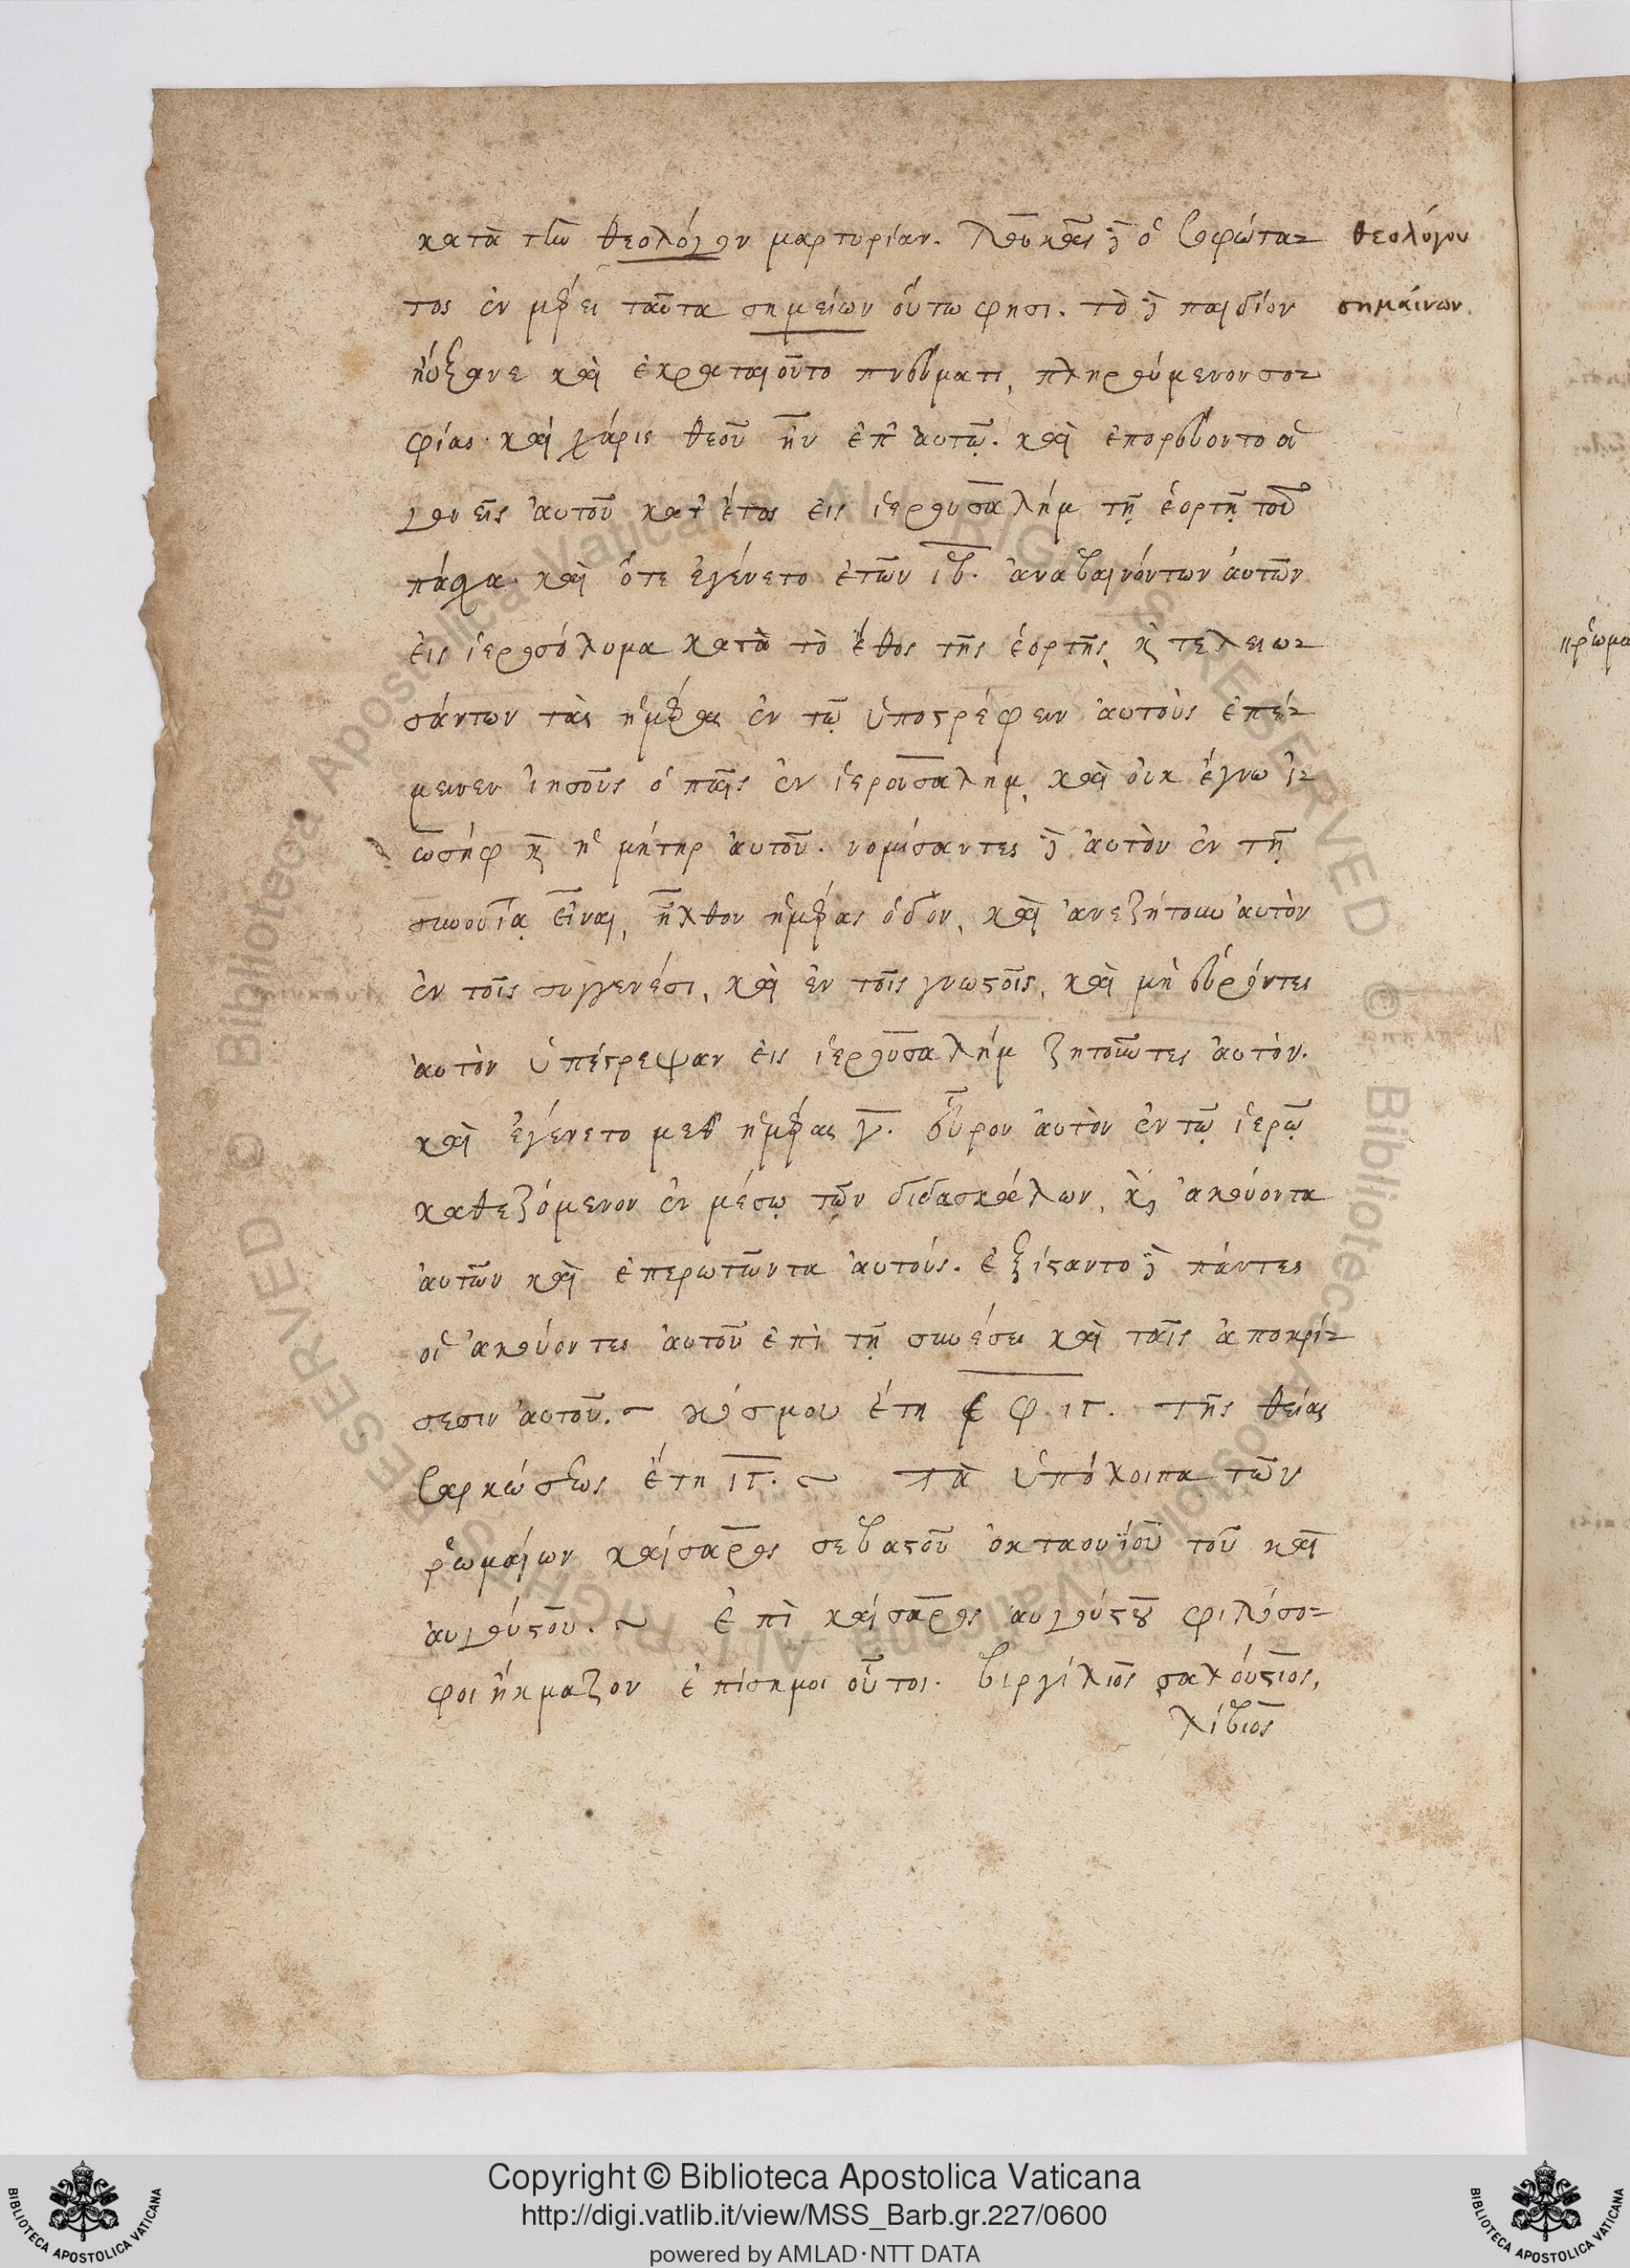 κατὰ τὴν θεολόγον μαρτυρίαν. λουκᾶς δὲ ὁ σοφώτα- θεολόγου
τος ἐν μέρει ταῦτα σημείων οὕτω φησι. τὸ δὲ παιδίον σημαίνων.
ηὔξανε καὶ ἐκραταιοῦτο πνεύματι, πληρούμενον σο-
φίας· καὶ χάρις θεοῦ ἦν ἐπ' αυτῷ. καὶ ἐπορεύοντο οἱ
γονεῖς αὐτοῦ κατ' ἔτος εἰς ἱερουσαλήμ τῇ ἑορτῇ τοῦ
πάσχα. καὶ ὅτε ἐγένετο ἐτῶν ιβ. ἀναβαινόντων ἀυτῶν
εἰς ἱεροσόλυμα κατὰ τὸ ἔθος τῆς ἑορτῆς, κ τελειω-
σάντων τὰς ἡμέρας ἐν τῷ ὑποστρέφειν ἀυτοὺς ἐπέ-
μεινεν ἰησοῦς ὁ παῖς ἐν ἱερουσαλήμ, καὶ ὀυκ ἔγνω ἰ-
ωσήφ κ ἡ μήτηρ ἀυτοῦ. νομίσαντες δὲ ἀυτὸν ἐν τῇ
συνοδίᾳ εἶναι, ἦλθον ἡμέρας ὁδόν, καὶ ἀνεζήτουν ἀυτὸν
ἐν τοῖς συγγενέσι, καὶ ἐν τοῖς γνωστοῖς, καὶ μὴ εὑρόντες
ἀυτὸν ὑπέστρεψαν εἰς ἱερουσαλήμ ζητοῦντες ἀυτόν.
καὶ ἐγένετο μεθ' ἡμέρας γ. εὗρον ἀυτὸν ἐν τῷ ἱερῷ
καθεζόμενον ἐν μέσῳ τῶν διδασκάλων, κ ἀκούοντα
ἀυτῶν καὶ ἐπερωτῶντα ἀυτούς. ἐξίσταντο δὲ πάντες
οἱ ἀκούοντες ἀυτοῦ ἐπὶ τῇ συνέσει καὶ ταῖς ἀποκρί-
σεσιν ἀυτοῦ. ~ κόσμου ἔτη ͵ε φ ιγ. τῆς θείας
σαρκώσεως ἔτη ιγ. ~ τὰ ὑπόλοιπα τῶν
ῥωμαίων καίσαρος σεβαστοῦ ὀκταουΐου τοῦ καὶ
ἀυγούστου. ~ ἐπὶ καίσαρος αυγούστου φιλόσο-
φοι ἤκμαζον ἐπίσημοι οὗτοι. βιργίλιος σαλούστιος,
λίβιος
Copyright © Biblioteca Apostolica Vaticana
http://digi.vatlib.it/view/MSS_Barb.gr.227/0600
powered by AMLAD·NTT DATA